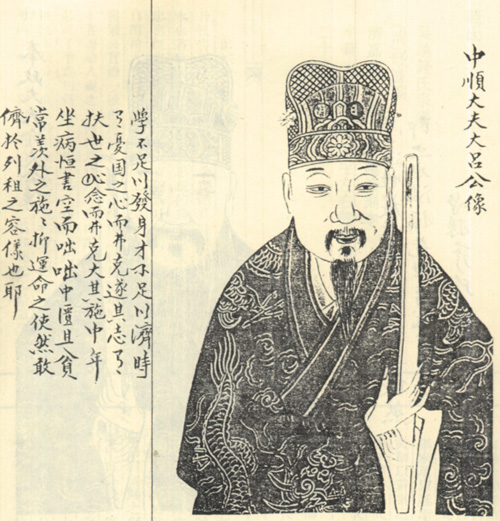 中順大夫大呂公像
學不足以發身才不足以濟時
有憂国之心而弗克遂其志有
扶世之念而弗克大其施中年
坐病恒書空而咄咄中懷且貧
常羨外之施〻折運命之使然敢
儕於列祖之容樣也耶